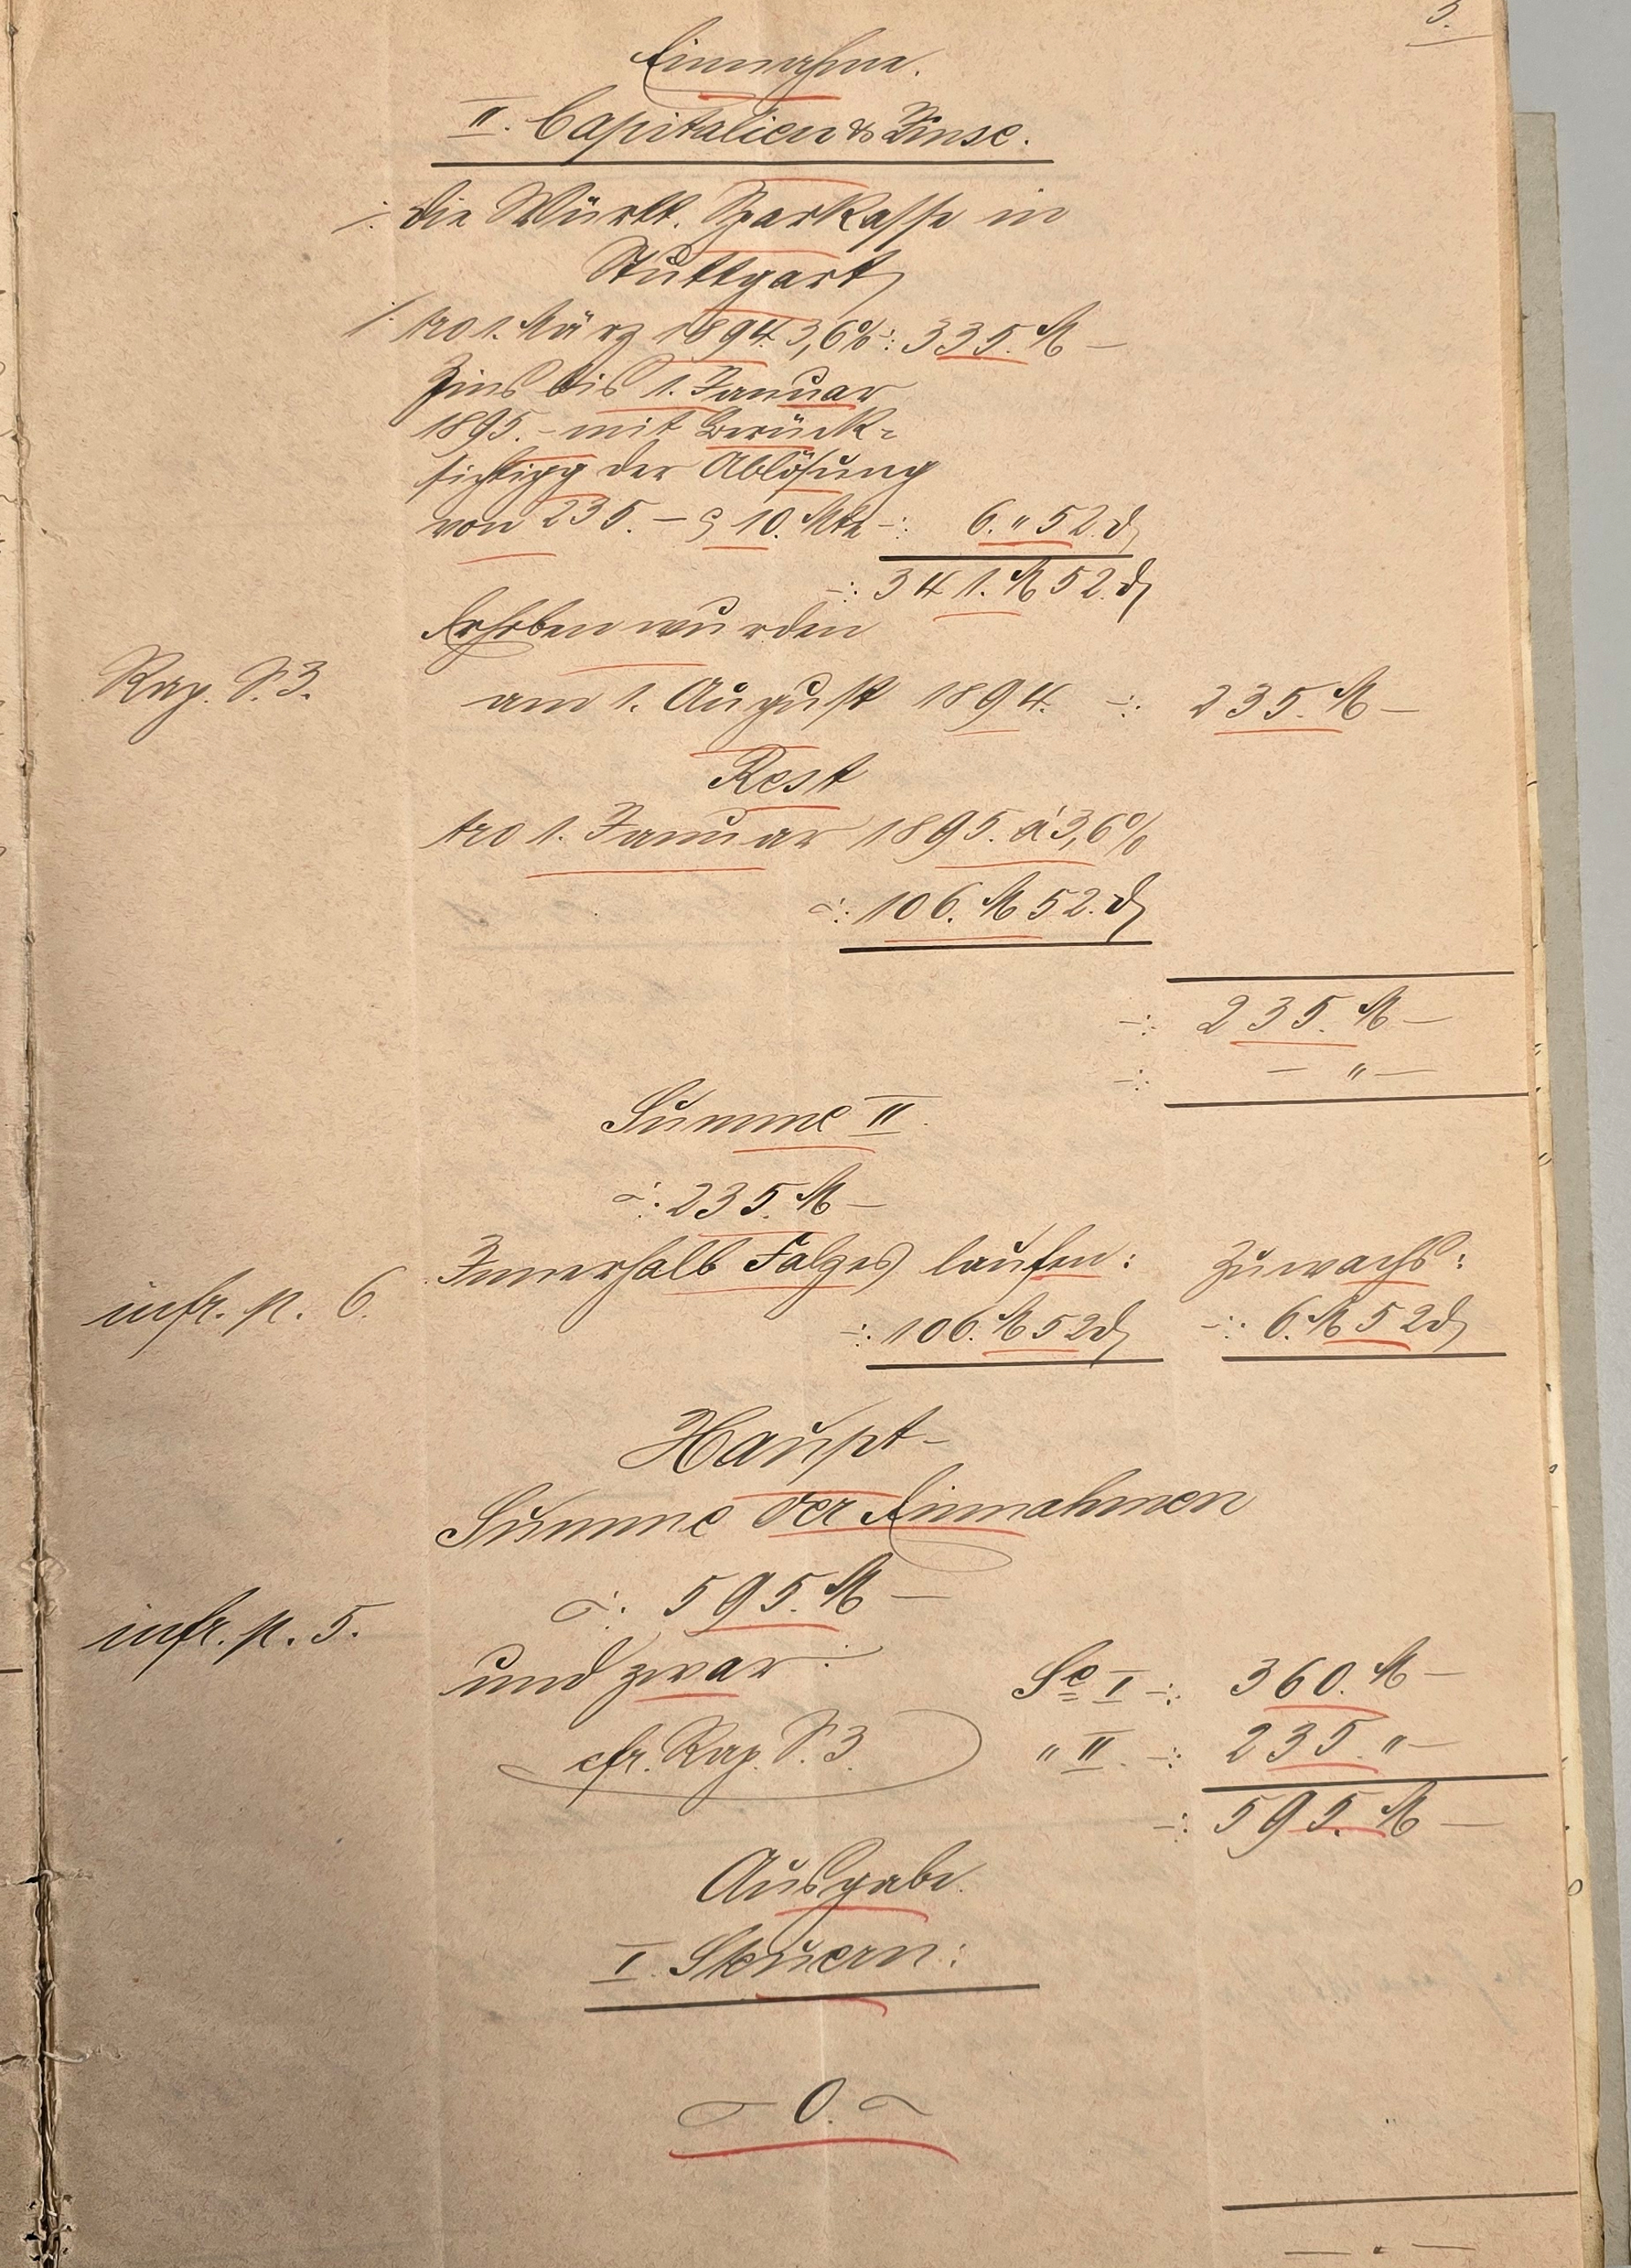 3.
Einnahme.
II. Capitalien & Zinse.
Die Württ. Sparkasse in
Stuttgart
pro 1. März 1894. 3,6% -: 335. M —
Zins bis 1. Januar
1895. - mit Berück-
sichtigg der Ablösung
von 235. — 10. Mte -: 6. " 52. ₰
-: 341. M 52. ₰
Erhoben wurden
Rap. S. 3. am 1. August 1894. -: 235. M —
Rest
pro 1. Januar 1895. à 3,6%
-: 106. M 52. ₰
-: 235. M —
-: — " —
Summe II.
-: 235. M —
Innerhalb Falzes laufen: Zuwachs:
infr. p. 6. -: 106. M 52 ₰ -: 6. M 52 ₰
Haupt-
Summe der Einnahmen
-: 595. M —
infr. p. 5.
und zwar: Se I -: 360. M —
cfr. Rap. S. 3. " II. -: 235. " —
-: 595. M —
Ausgabe.
I. Steuern:
— 0. —
— . —